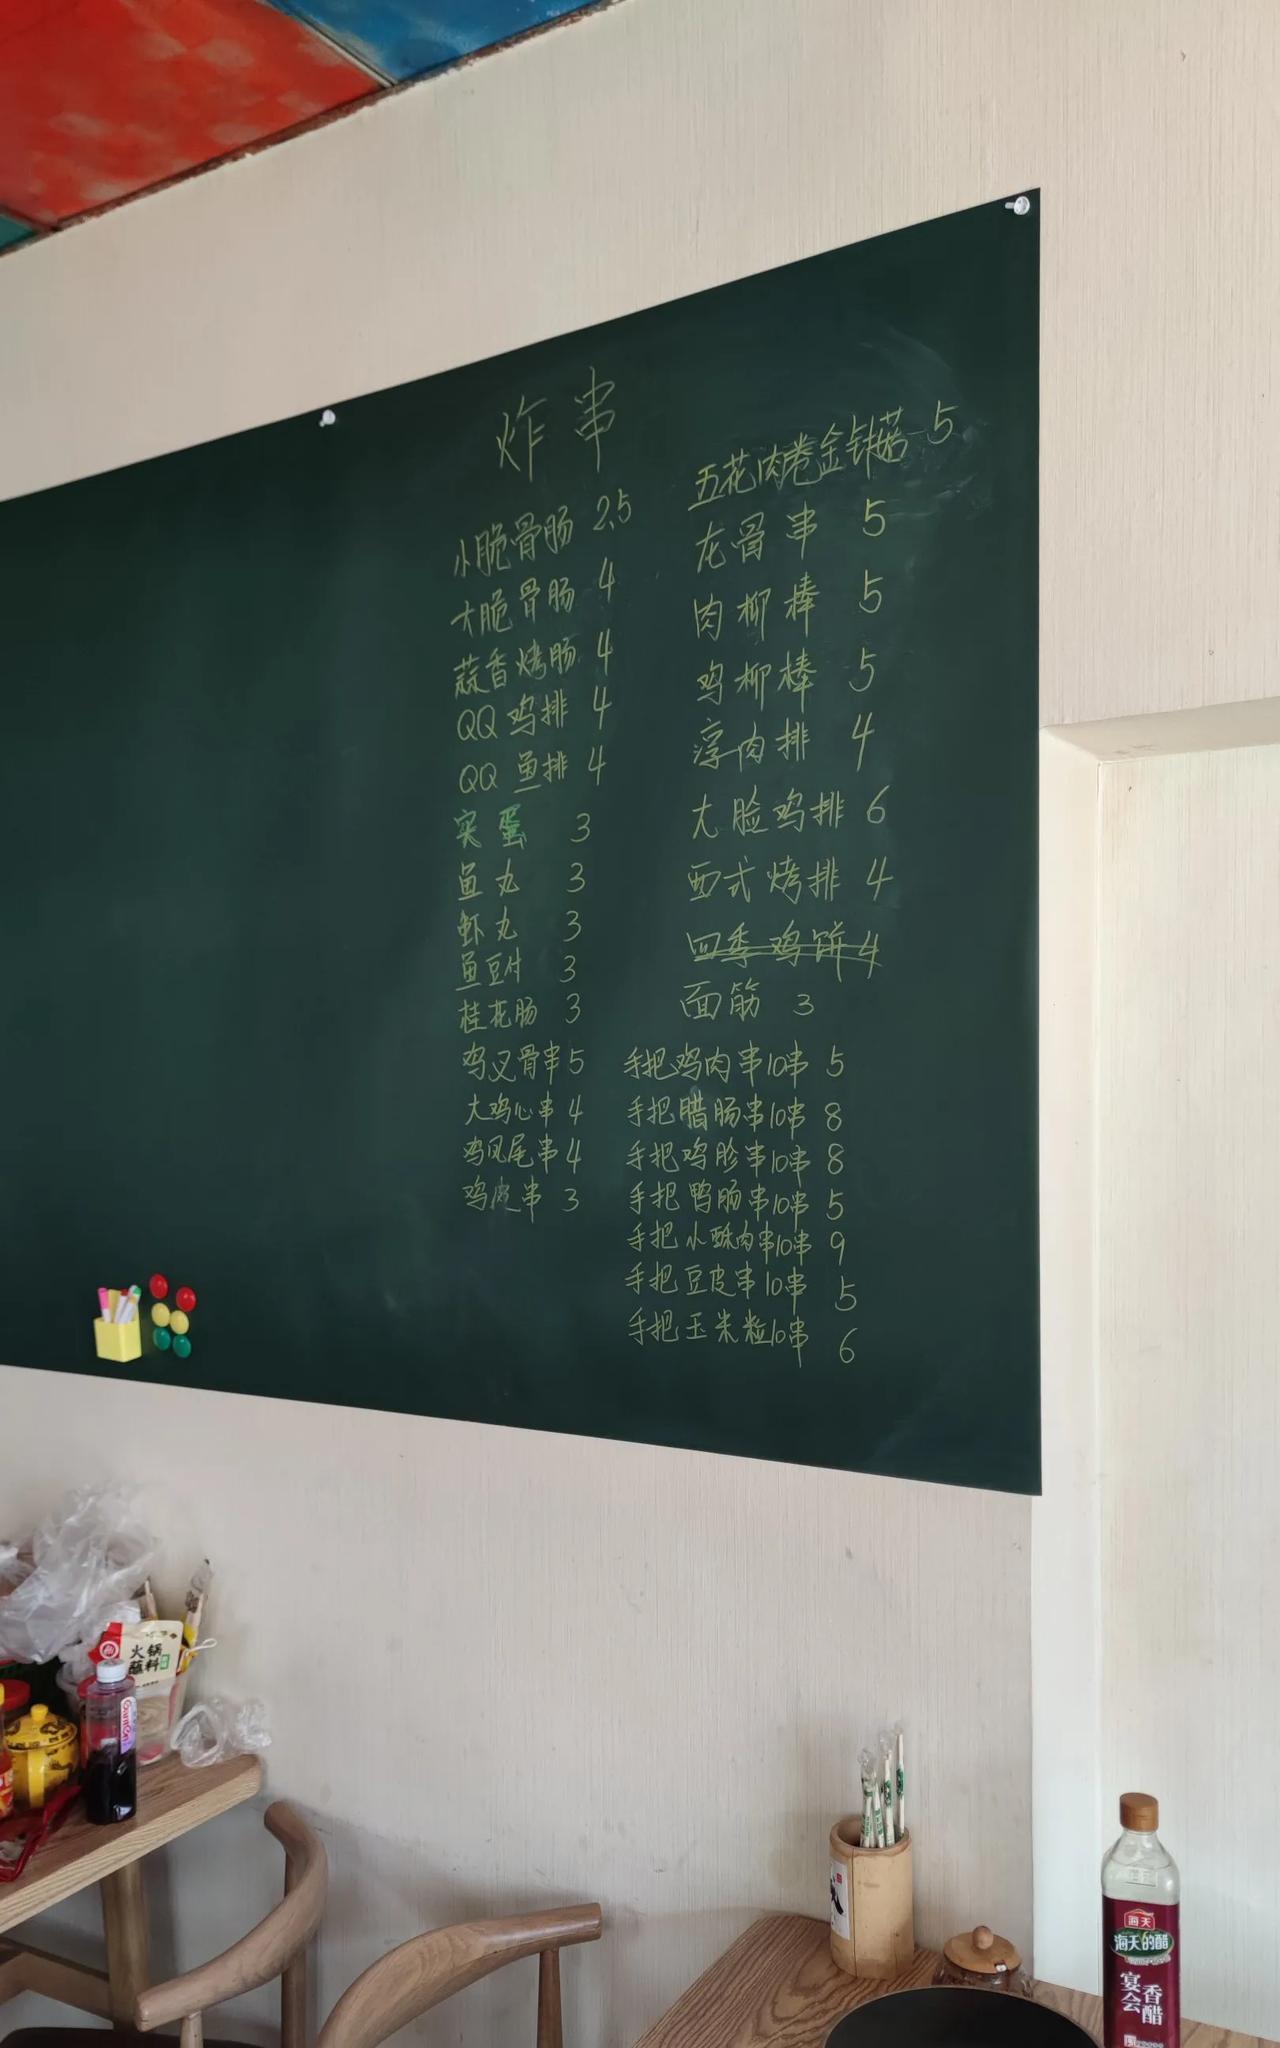 炸串
小脆骨肠 2.5
大脆骨肠 4
蒜香烤肠 4
QQ鸡排 4
QQ鱼排 4
实蛋 3
鱼丸 3
虾丸 3
鱼豆付 3
桂花肠 3
鸡叉骨串 5
大鸡心串 4
鸡凤尾串 4
鸡皮串 3
五花肉卷金针菇 5
龙骨串 5
肉柳棒 5
鸡柳棒 5
淳肉排 4
大脸鸡排 6
西式烤排 4
四季鸡饼 4
面筋 3
手把鸡肉串10串 5
手把腊肠串10串 8
手把鸡胗串10串 8
手把鸭肠串10串 5
手把小酥肉串10串 9
手把豆皮串10串 5
手把玉米粒10串 6
火锅
蘸料
海天
海天的醋
宴会
香醋